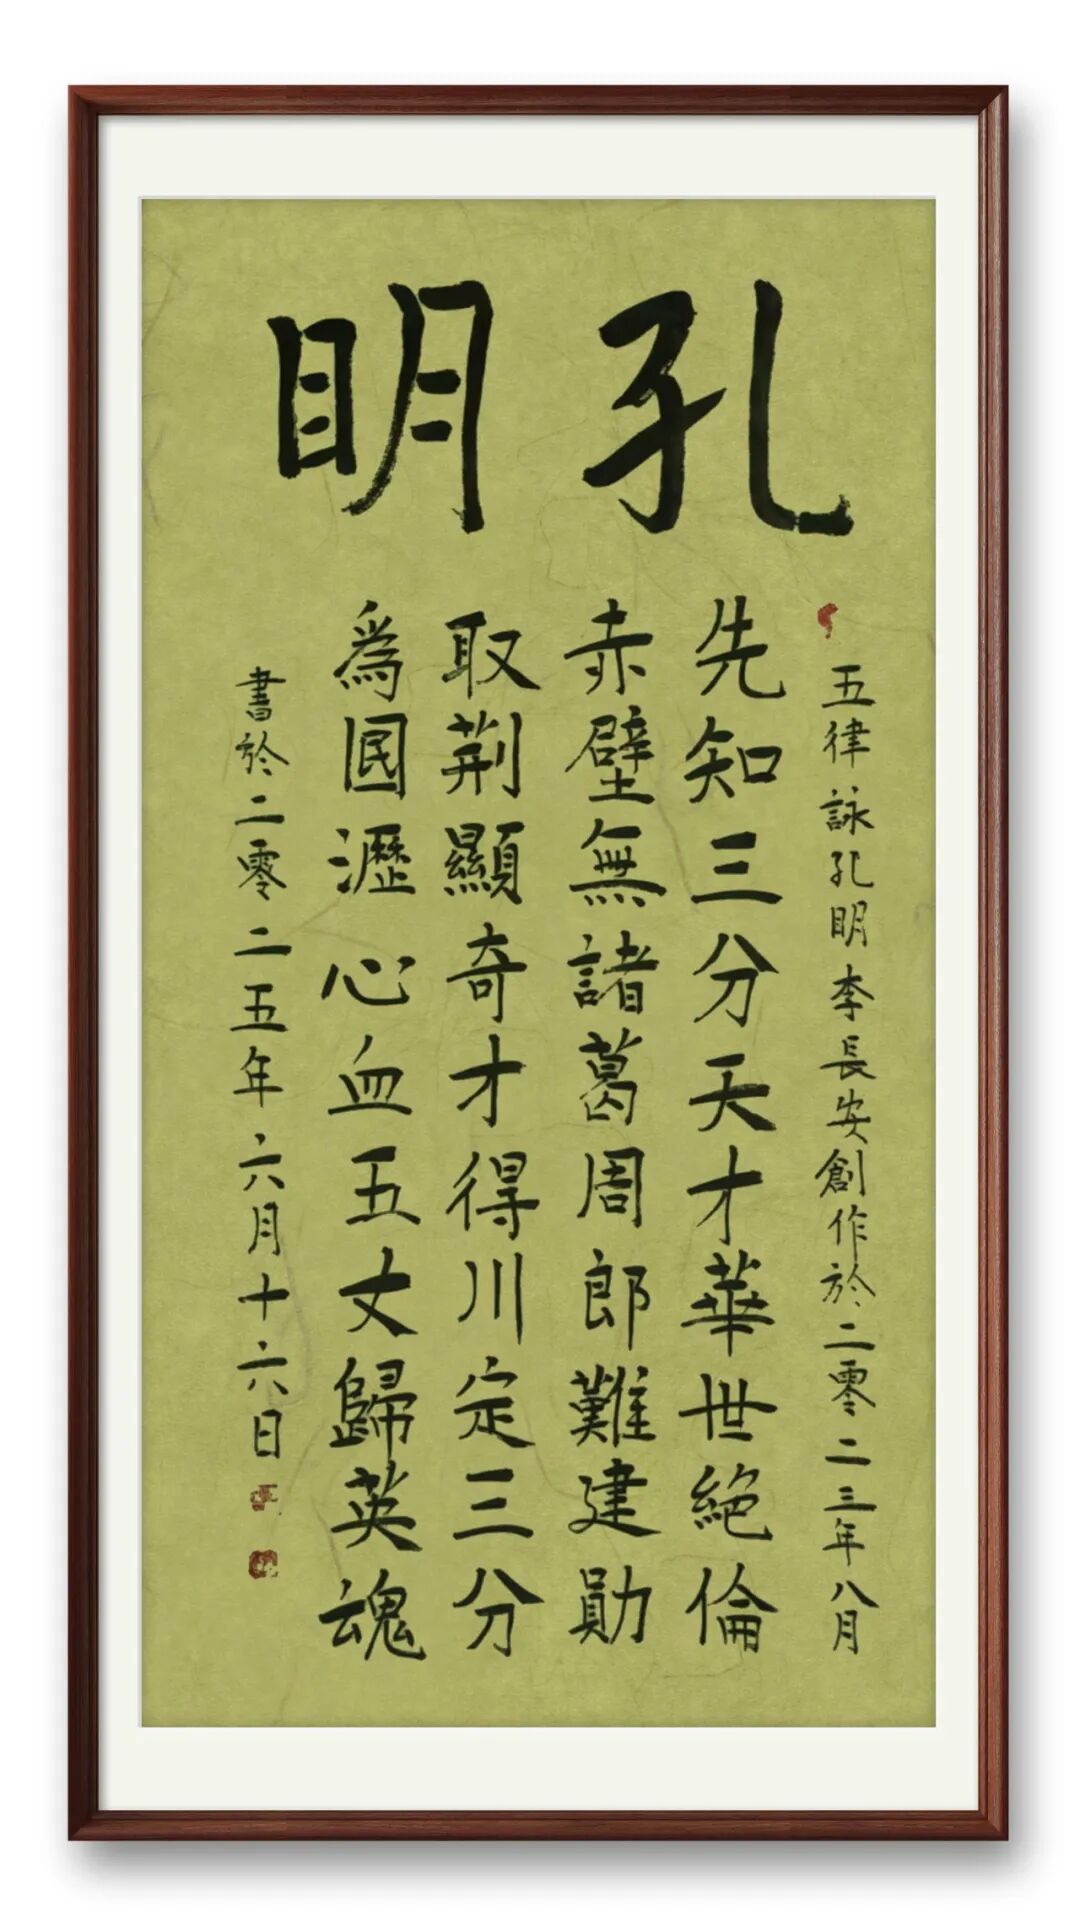 孔明
五律詠孔明李長安創作於二零二三年八月
先知三分天才華世絕倫
赤壁無諸葛周郎難建勛
取荆顯奇才得川定三分
為國瀝心血五丈歸英魂
書於二零二五年六月十六日